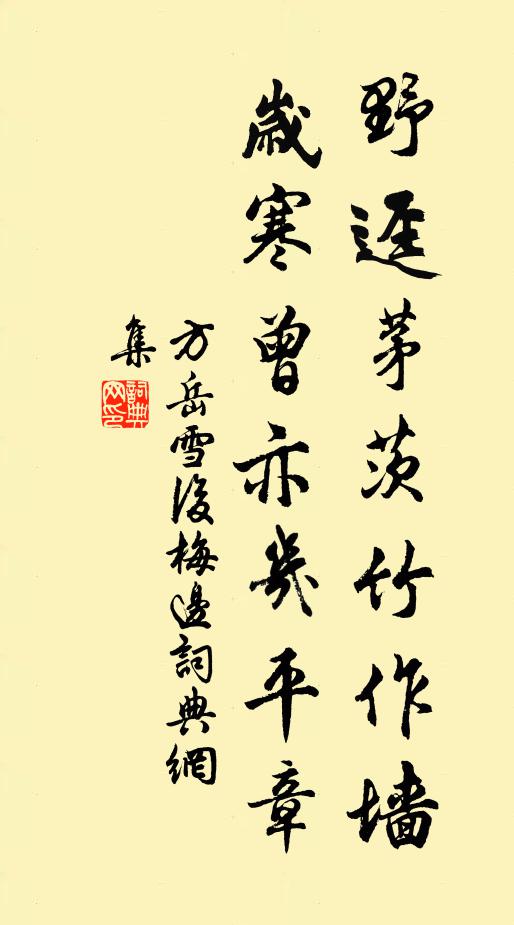 野逕茅茨竹作墙
歲寒曾亦幾平章
方岳雪後梅邊詞典網
集
詞典網印